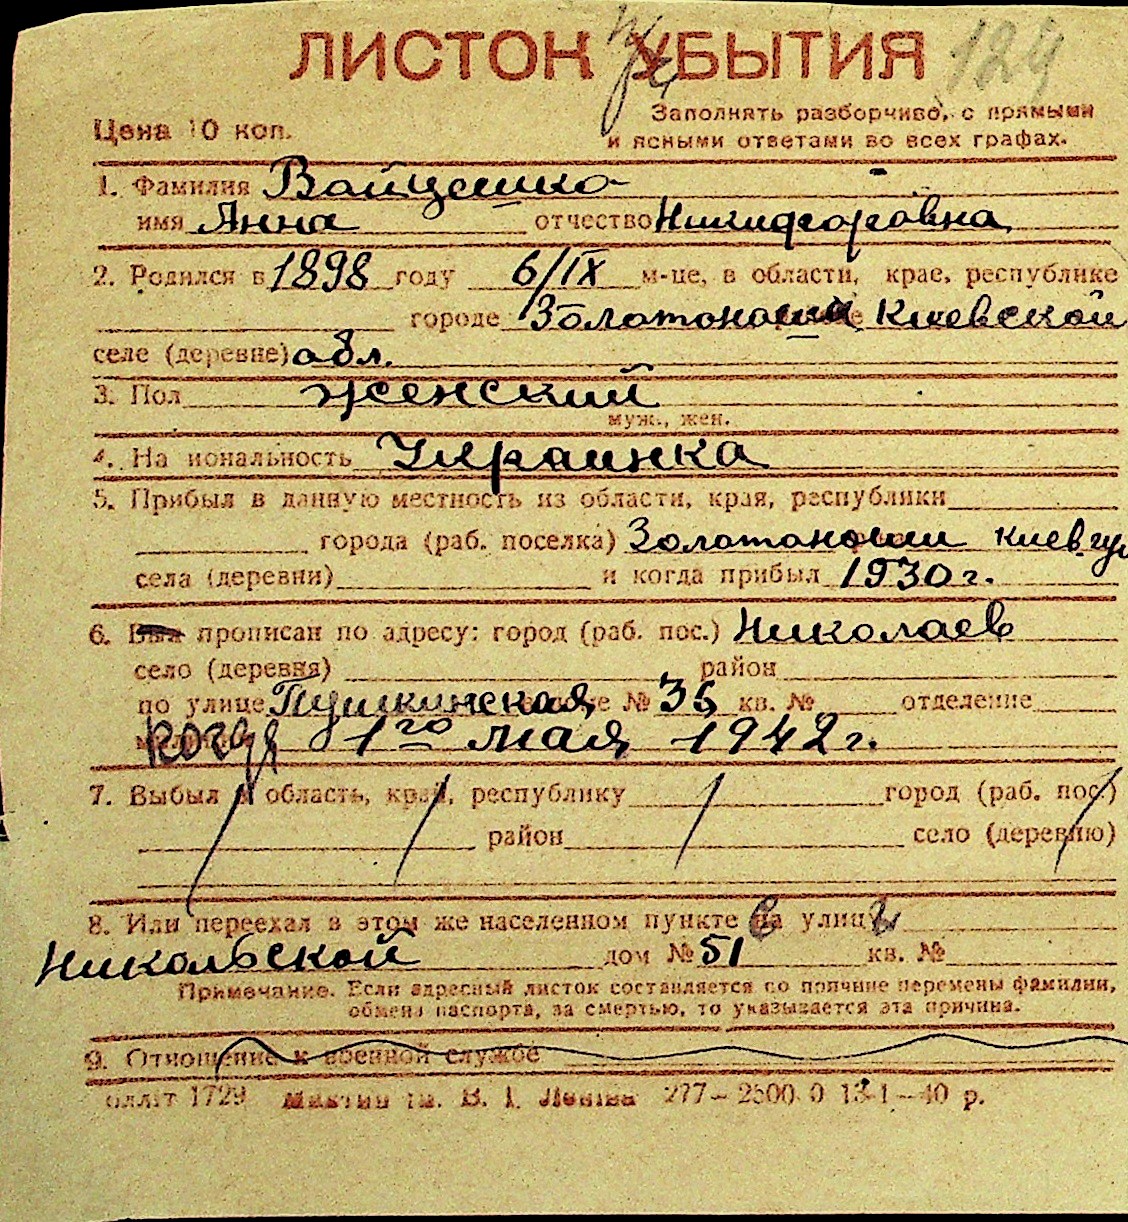 ЛИСТОК УБЫТИЯ 124
Цена 10 коп.
Заполнять разборчиво, с прямыми
и ясными ответами во всех графах.
1. Фамилия Вайцешко
имя Анна отчество Никифоровна
2. Родился в 1898 году 6/IX м-це, в области, крае, республике
городе Золотоноша Киевской
селе (деревне) обл.
3. Пол женский
муж., жен.
4. На иональность Украинка
5. Прибыл в данную местность из области, края, республики
города (раб. поселка) Золотаноши Киев.
села (деревни) и когда прибыл 1930 г.
6. прописан по адресу: город (раб. пос.) Николаев
село (деревня) район
по улице Пушкинская № 35 кв. № отделение
когда 1го мая 1942 г.
7. Выбыл в область, край, республику город (раб. пос.)
район село (деревню)
8. Или переехал в этом же населенном пункте в улице
Никольской дом № 51 кв. №
Примечание. Если адресный листок составляется по причине перемены фамилии,
обмена паспорта, за смертью, то указывается эта причина.
9. Отношение к военной службе
олліт 1729 ім. В. І. Леніна 277–2500.0 13-1–40 р.